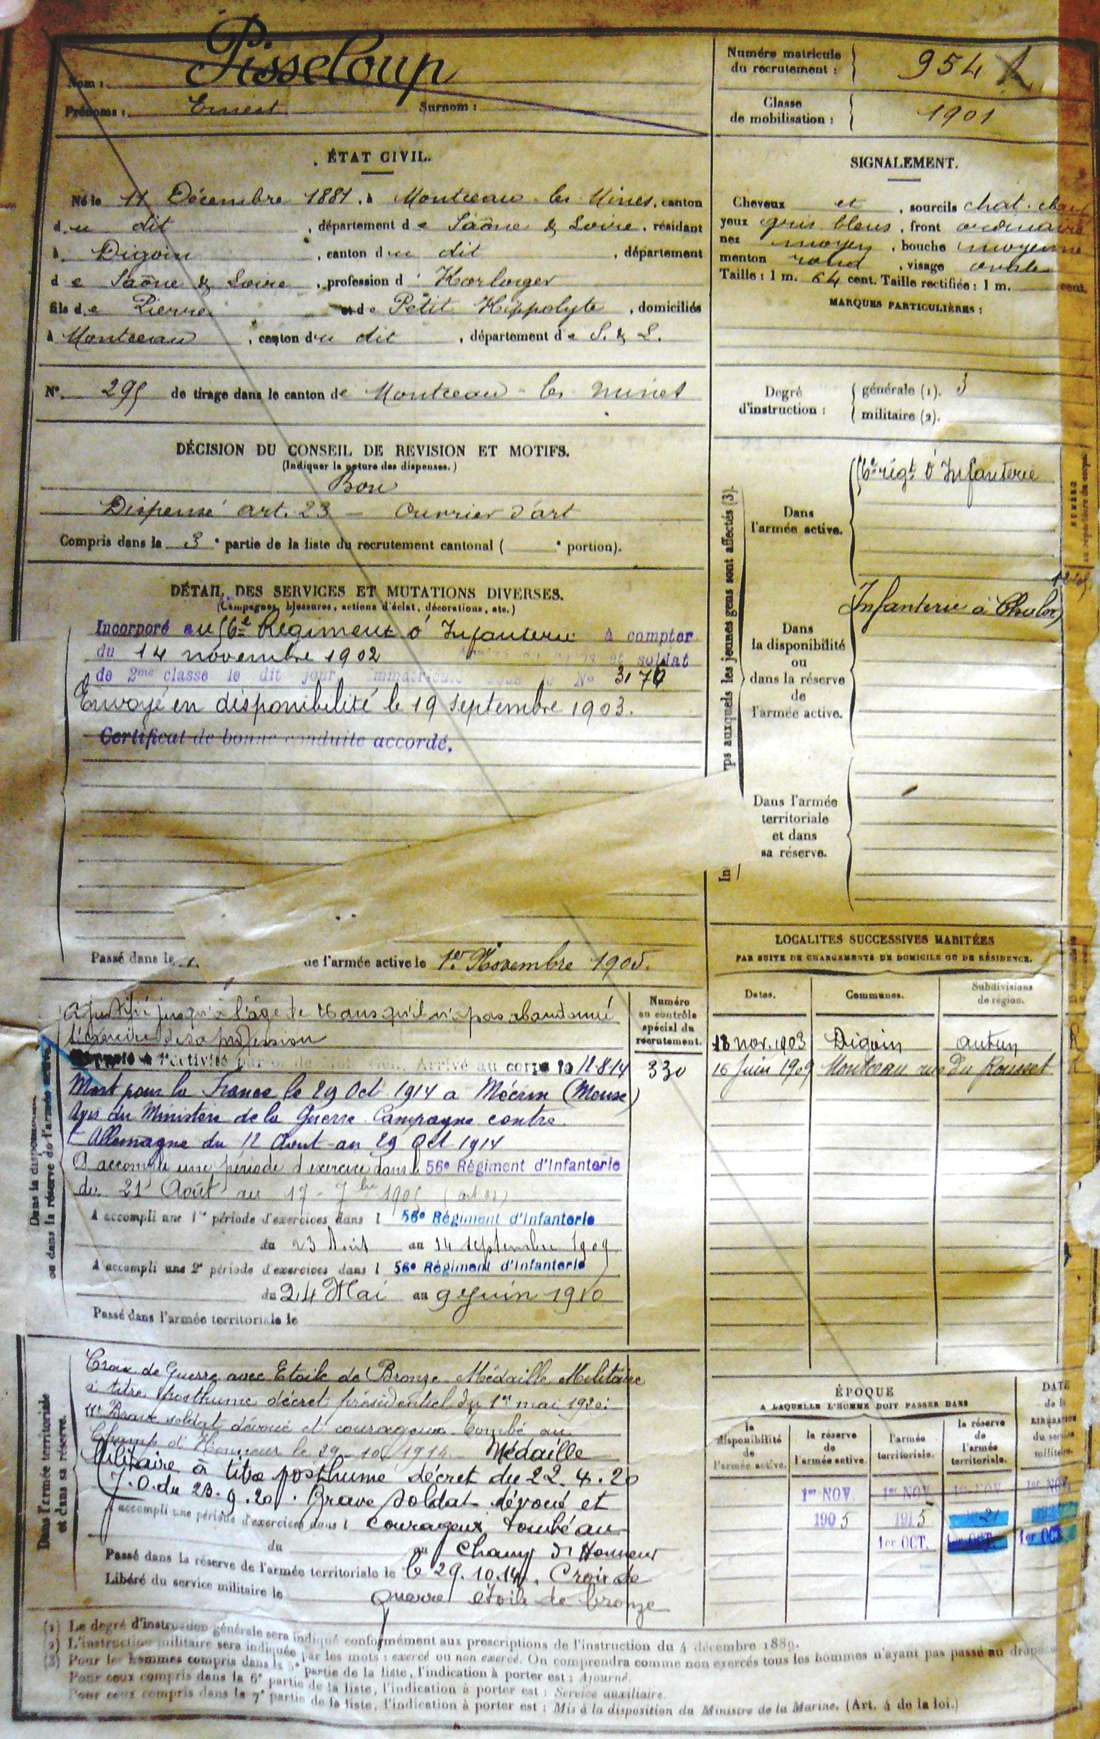 Nom : Pisseloup
Prénoms : Ernest Surnom :
Numéro matricule du recrutement : 954
Classe de mobilisation : 1901
ÉTAT CIVIL.
Né le 11 Décembre 1881, à Montceau les Mines, canton
du dit, département de Saône & Loire, résidant
à Digoin, canton du dit, département
de Saône & Loire, profession d' Horloger
fils de Pierre et de Petit Hippolyte, domiciliés
à Montceau, canton du dit, département de S. & L.
N° 295 de tirage dans le canton de Montceau les Mines
SIGNALEMENT.
Cheveux et, sourcils chat.
yeux gris bleus, front ordinaire
nez moyen, bouche moyenne
menton rond, visage ovale
Taille : 1 m. 64 cent. Taille rectifiée : 1 m. cent.
MARQUES PARTICULIÈRES :
Degré d'instruction : générale (1). 3
militaire (2).
DÉCISION DU CONSEIL DE REVISION ET MOTIFS.
(Indiquer la nature des dispenses.)
Bon
Dispensé art. 23 — Ouvrier d'art
Compris dans la 3e partie de la liste du recrutement cantonal ( e portion).
DÉTAIL DES SERVICES ET MUTATIONS DIVERSES.
(Campagnes, blessures, actions d'éclat, décorations, etc.)
Incorporé au 56e Régiment d'Infanterie à compter
du 14 novembre 1902 et soldat
de 2me classe le dit jour N° 3176
Envoyé en disponibilité le 19 septembre 1903.
Certificat de bonne conduite accordé.
Passé dans le r. de l'armée active le 1er Novembre 1905.
ps auxquels les jeunes gens sont affectés (3).
Dans l'armée active. 56e régt d'Infanterie
Dans la disponibilité ou dans la réserve de l'armée active. Infanterie à Chalon
Dans l'armée territoriale et dans sa réserve.
LOCALITÉS SUCCESSIVES HABITÉES
PAR SUITE DE CHANGEMENTS DE DOMICILE OU DE RÉSIDENCE.
Dates. Communes. Subdivisions de région.
18 nov. 1903 Digoin Autun R
16 Juin 1909 Montceau rue du Rousset
Dans la disponibilité ou dans la réserve de l'armée active.
Numéro au contrôle spécial du recrutement.
330
A justifié jusqu'à l'âge de 26 ans qu'il n'a pas abandonné
l'exercice de sa profession
Rappelé à l'activité Arrivé au corps le 12-8-14
Mort pour la France le 29 Oct 1914 à Mécrin (Meuse)
Avis du Ministère de la Guerre Campagne contre
l'Allemagne du 12 Aout au 29 Oct 1914
A accompli une période d'exercice dans le 56e Régiment d'Infanterie
du 21 Août au 17 - 7bre
A accompli une 1re période d'exercices dans l 56e Régiment d'Infanterie
du 23 Août au 14 septembre 1909
A accompli une 2e période d'exercices dans l 56e Régiment d'Infanterie
du 24 Mai au 9 Juin 1910
Passé dans l'armée territoriale le
Dans l'armée territoriale et dans sa réserve.
Croix de Guerre avec Etoile de Bronze Médaille Militaire
à titre posthume décret présidentiel du 1er mai 1920:
"Brave soldat dévoué et courageux. Tombé au
Champ d'Honneur le 29-10-1914 Médaille
Militaire à titre posthume décret du 22.4.20
J.O. du 23.9.20. Brave soldat dévoué et
A accompli une période d'exercices dans l courageux tombé au
du au Champ d'Honneur
Passé dans la réserve de l'armée territoriale le le 29.10.14. Croix de
Libéré du service militaire le guerre étoile de bronze
ÉPOQUE
A LAQUELLE L'HOMME DOIT PASSER DANS
la disponibilité de l'armée active. la réserve de l'armée active. l'armée territoriale. la réserve de l'armée territoriale. DATE de la LIBÉRATION du service militaire.
1er NOV. 1er NOV. 1er NOV. 1er NOV.
1905 1915 21
1er OCT. 1er OCT. 1er OCT.
(1) Le degré d'instruction générale sera indiqué conformément aux prescriptions de l'instruction du 4 décembre 1889.
(2) L'instruction militaire sera indiquée par les mots : exercé ou non exercé. On comprendra comme non exercés tous les hommes n'ayant pas passé au drapeau
(3) Pour les hommes compris dans la 5e partie de la liste, l'indication à porter est : Ajourné.
Pour ceux compris dans la 6e partie de la liste, l'indication à porter est : Service auxiliaire.
Pour ceux compris dans la 7e partie de la liste, l'indication à porter est : Mis à la disposition du Ministre de la Marine. (Art. 4 de la loi.)